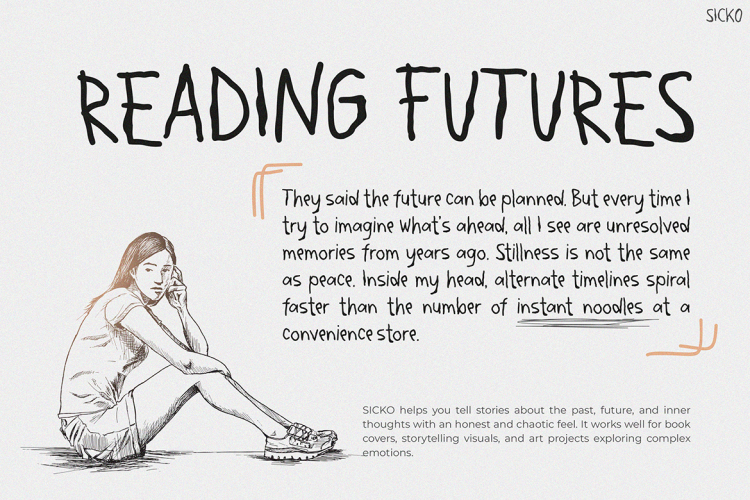 SICKO
READING FUTURES
They said the future can be planned. But every time I
try to imagine what's ahead, all I see are unresolved
memories from years ago. Stillness is not the same
as peace. Inside my head, alternate timelines spiral
faster than the number of instant noodles at a
convenience store.
SICKO helps you tell stories about the past, future, and inner
thoughts with an honest and chaotic feel. It works well for book
covers, storytelling visuals, and art projects exploring complex
emotions.